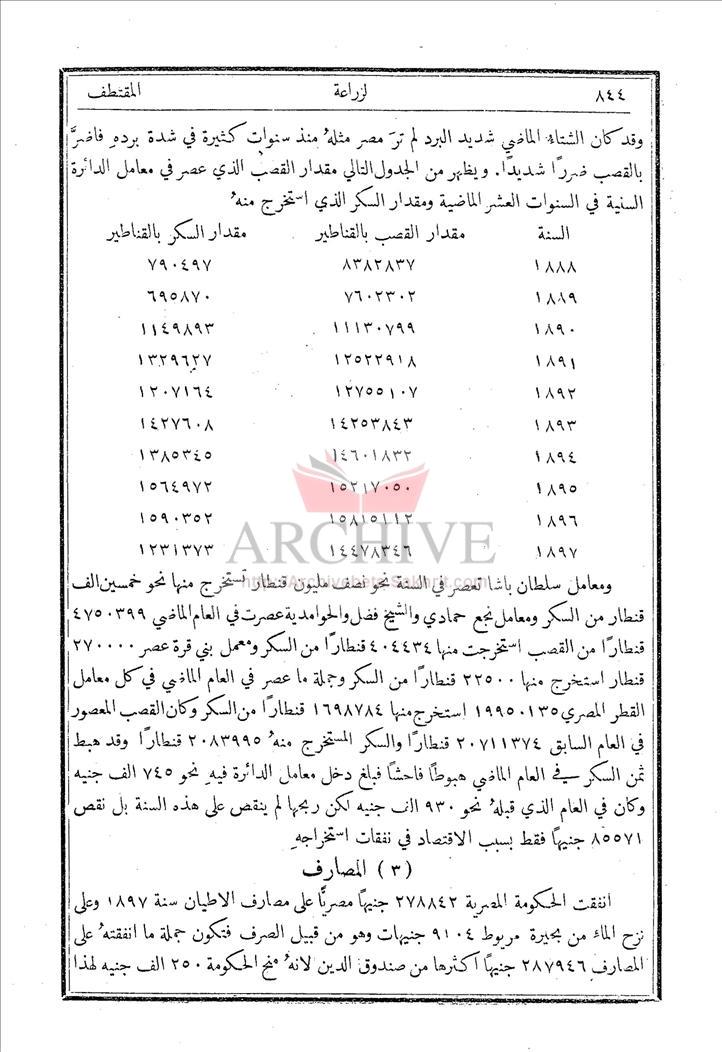 ٨٤٤ لزراعة المقتطف
وقد كان الشتاءُ الماضي شديد البرد لم ترَ مصر مثلهُ منذ سنوات كثيرة في شدة بردهِ فاضرَّ
بالقصب ضررًا شديدًا. ويظهر من الجدول التالي مقدار القصب الذي عصر في معامل الدائرة
السنية في السنوات العشر الماضية ومقدار السكر الذي استخرج منهُ
السنة مقدار القصب بالقناطير مقدار السكر بالقناطير
١٨٨٨ ٨٣٨٢٨٣٧ ٧٩٠٤٩٧
١٨٨٩ ٧٦٠٢٣٠٢ ٦٩٥٨٧٠
١٨٩٠ ١١١٣٠٧٩٩ ١١٤٩٨٩٣
١٨٩١ ١٢٥٢٢٩١٨ ١٣٢٩٦٢٧
١٨٩٢ ١٢٧٥٥١٠٧ ١٢٠٧١٦٤
١٨٩٣ ١٤٢٥٣٨٤٣ ١٤٢٧٦٠٨
١٨٩٤ ١٤٦٠١٨٣٢ ١٣٨٥٣٤٥
١٨٩٥ ١٥٢١٧٠٥٠ ١٥٦٤٩٧٢
١٨٩٦ ١٥٨١٥١١٢ ١٥٩٠٣٥٢
ARCHIVE
١٨٩٧ ١٤٤٧٨٣٤٦ ١٢٣١٣٧٣
http://Archivebeta.Sakhrit.com
ومعامل سلطان باشا تعصر في السنة نحو نصف مليون قنطار تستخرج منها نحو خمسين الف
قنطار من السكر ومعامل نجع حمادي والشيخ فضل والحوامدية عصرت في العام الماضي ٤٧٥٠٣٩٩
قنطارًا من القصب استخرجت منها ٤٠٤٤٣٤ قنطارًا من السكر ومعمل بني قرة عصر ٢٧٠٠٠٠
قنطار استخرج منها ٢٢٥٠٠ قنطارًا من السكر وجملة ما عصر في العام الماضي في كل معامل
القطر المصري ١٩٩٥٠١٣٥ استخرج منها ١٦٩٨٧٨٤ قنطارًا من السكر وكان القصب المعصور
في العام السابق ٢٠٧١١٣٧٤ قنطارًا والسكر المستخرج منهُ ٢٠٨٣٩٩٥ قنطارًا وقد هبط
ثمن السكر في العام الماضي هبوطًا فاحشًا فبلغ دخل معامل الدائرة فيهِ نحو ٧٤٥ الف جنيه
وكان في العام الذي قبلهُ نحو ٩٣٠ الف جنيه لكن ربحها لم ينقص على هذه السنة بل نقص
٨٥٥٧١ جنيهًا فقط بسبب الاقتصاد في نفقات استخراجهِ
(٣) المصارف
انفقت الحكومة المصرية ٢٧٨٨٤٢ جنيهًا مصريًّا على مصارف الاطيان سنة ١٨٩٧ وعلى
نزح الماء من بحيرة مريوط ٩١٠٤ جنيهات وهو من قبيل الصرف فتكون جملة ما انفقتهُ على
المصارف ٢٨٧٩٤٦ جنيهًا اكثرها من صندوق الدين لانهُ منح الحكومة ٢٥٠ الف جنيه لهذا